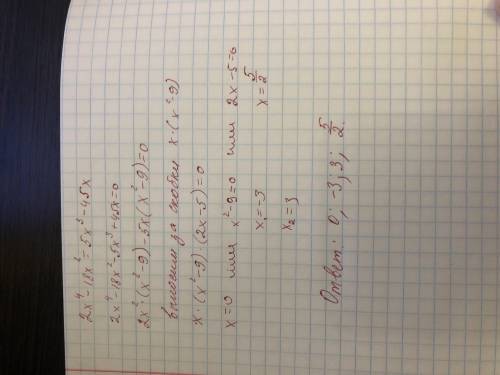 2x⁴-18x²=5x³-45x
2x⁴-18x²-5x³+45x=0
2x²(x²-9)-5x(x²-9)=0
выносим за скобки x·(x²-9)
x·(x²-9)·(2x-5)=0
x=0 или x²-9=0 или 2x-5=0
x₁=-3 x=5/2
x₂=3
Ответ: 0; -3; 3; 5/2.